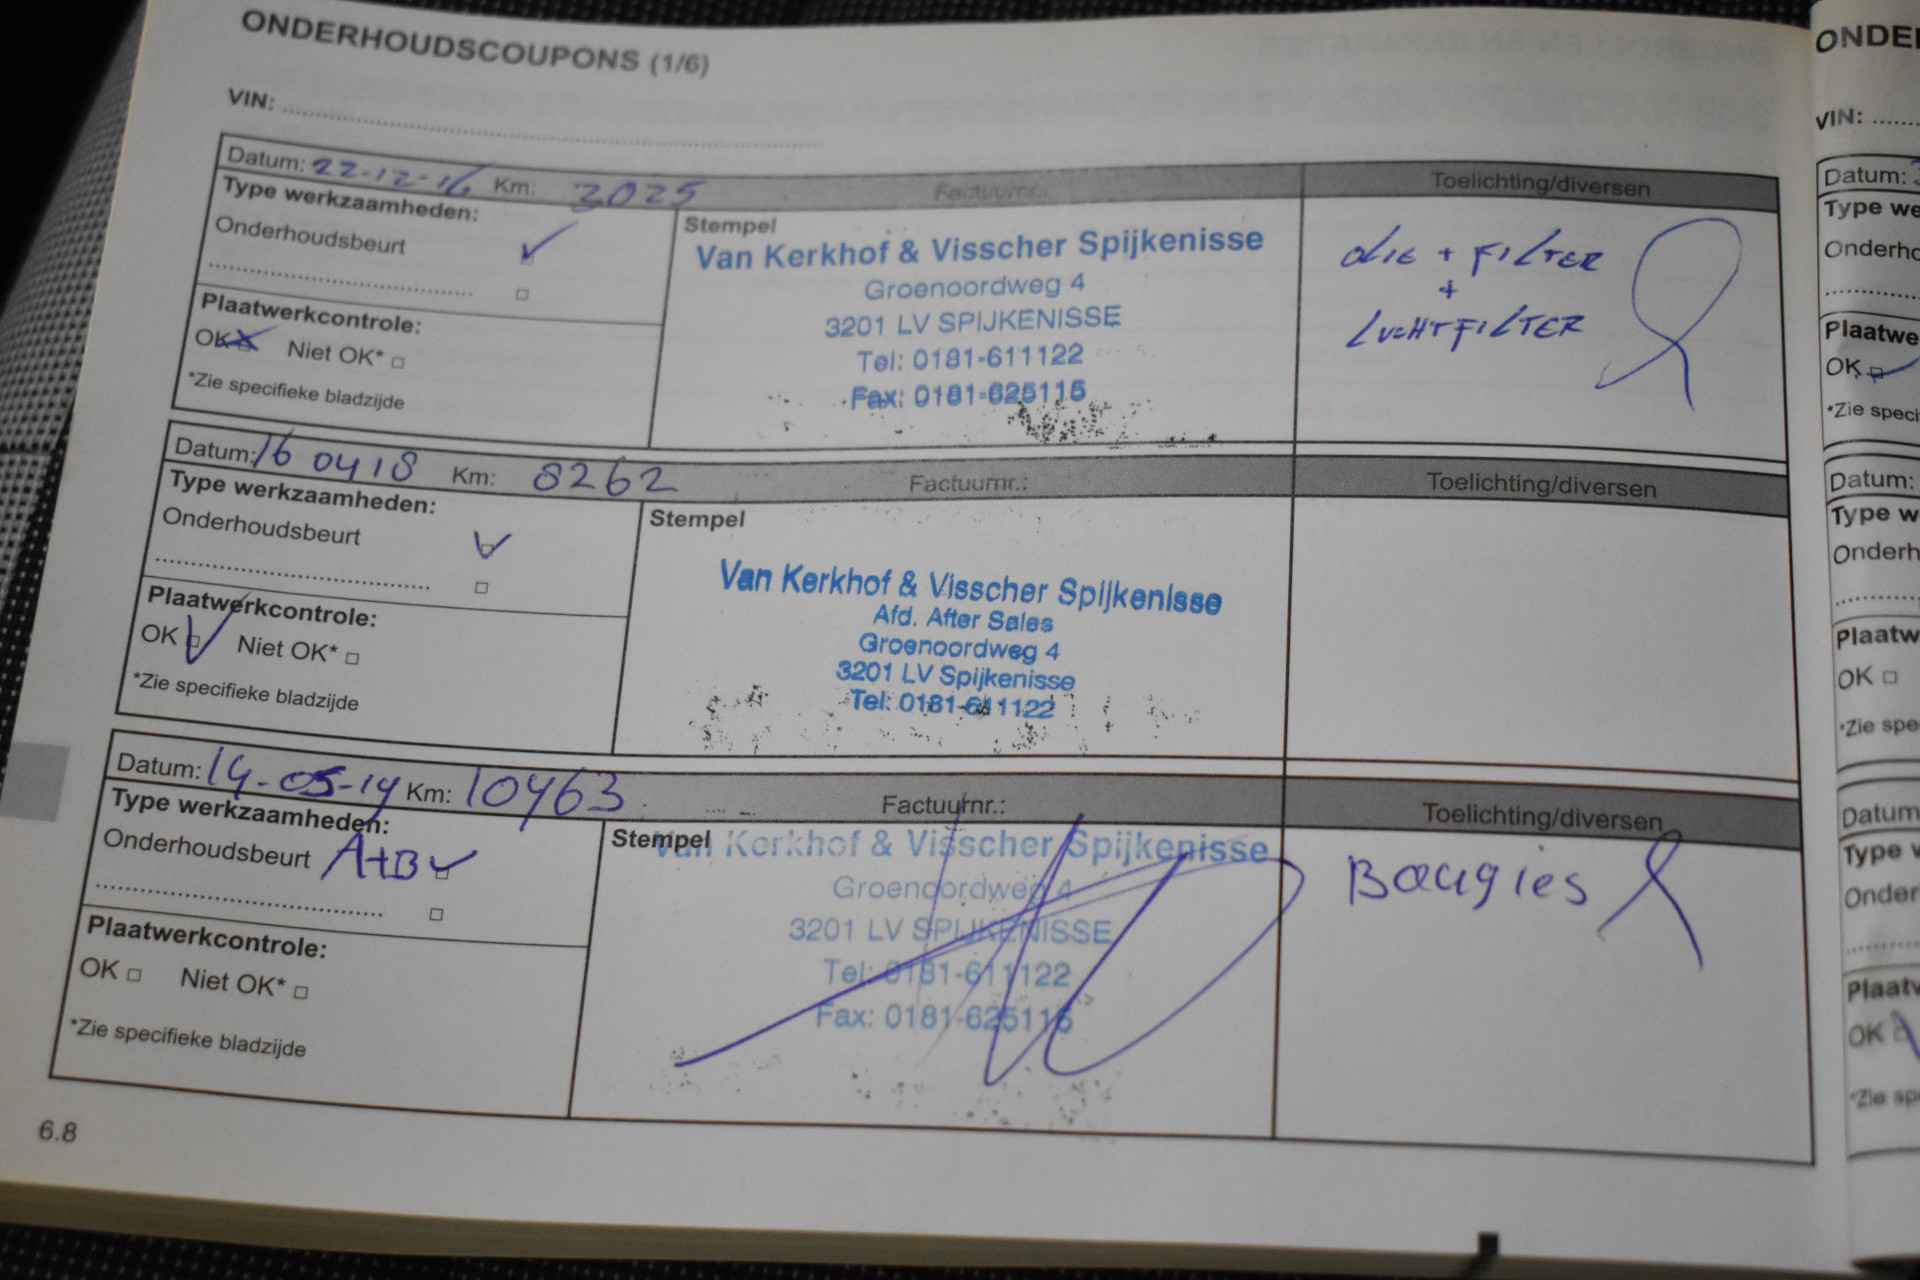 ONDERHOUDSCOUPONS (1/6)
VIN:
Datum: 22-12-16 Km: 3025 Factuurnr.: Toelichting/diversen
Type werkzaamheden:
Onderhoudsbeurt
Plaatwerkcontrole:
OK Niet OK*
*Zie specifieke bladzijde
Stempel
Van Kerkhof & Visscher Spijkenisse
Groenoordweg 4
3201 LV SPIJKENISSE
Tel: 0181-611122
Fax: 0181-625115
OLIE + FILTER
+
LUCHTFILTER
Datum: 16 04 18 Km: 8262 Factuurnr.: Toelichting/diversen
Type werkzaamheden:
Onderhoudsbeurt
Plaatwerkcontrole:
OK Niet OK*
*Zie specifieke bladzijde
Stempel
Van Kerkhof & Visscher Spijkenisse
Afd. After Sales
Groenoordweg 4
3201 LV Spijkenisse
Tel: 0181-611122
Datum: 14-05-19 Km: 10463 Factuurnr.: Toelichting/diversen
Type werkzaamheden:
Onderhoudsbeurt A+B
Plaatwerkcontrole:
OK Niet OK*
*Zie specifieke bladzijde
Stempel
Van Kerkhof & Visscher Spijkenisse
Groenoordweg 4
3201 LV SPIJKENISSE
Tel: 0181-611122
Fax: 0181-625115
Bougies
6.8
VIN:
Datum:
Type we
Onderho
Plaatwe
OK
*Zie speci
Datum:
Type w
Onderh
Plaatw
OK
*Zie spe
Datum
Type
Onder
Plaatw
OK
*Zie sp